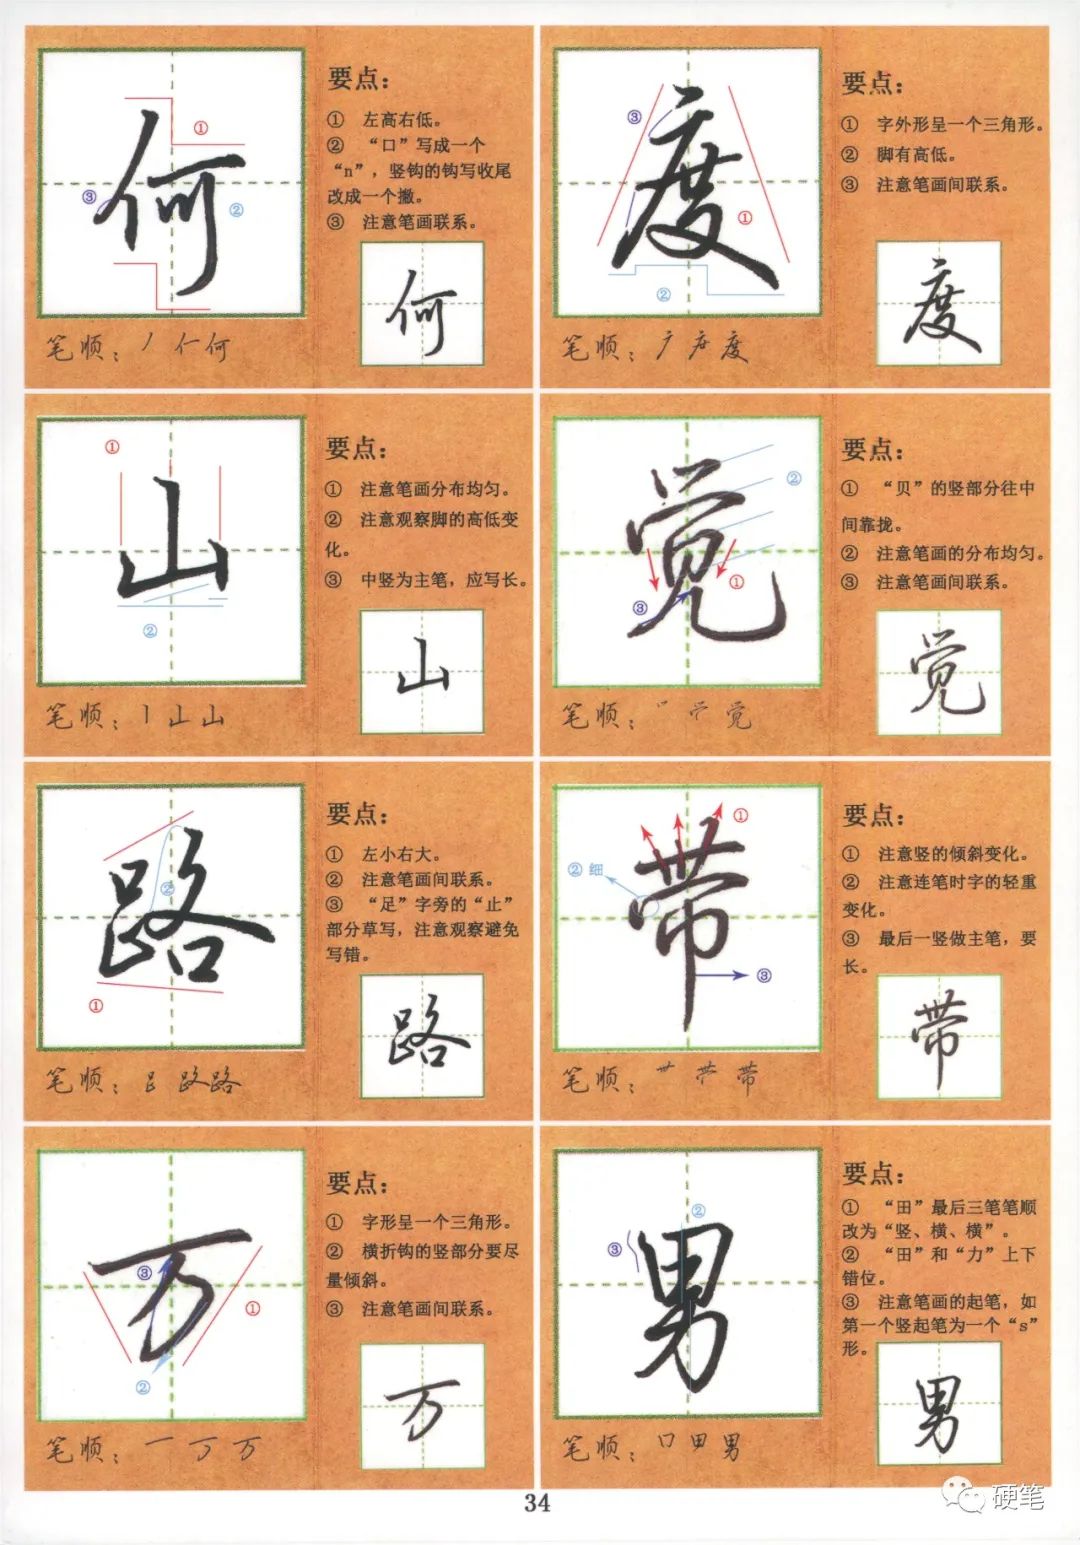 何
①
②
③
要点：
① 左高右低。
② “口”写成一个
“n”，竖钩的钩写收尾
改成一个撇。
③ 注意笔画联系。
何
笔顺：丿 亻 何
度
③
①
②
要点：
① 字外形呈一个三角形。
② 脚有高低。
③ 注意笔画间联系。
度
笔顺：度
山
①
②
要点：
① 注意笔画分布均匀。
② 注意观察脚的高低变
化。
③ 中竖为主笔，应写长。
山
笔顺：丨 山 山
觉
②
①
③
要点：
① “贝”的竖部分往中
间靠拢。
② 注意笔画的分布均匀。
③ 注意笔画间联系。
觉
笔顺：觉
路
②
①
要点：
① 左小右大。
② 注意笔画间联系。
③ “足”字旁的“止”
部分草写，注意观察避免
写错。
路
笔顺：路
带
①
② 细
③
要点：
① 注意竖的倾斜变化。
② 注意连笔时字的轻重
变化。
③ 最后一竖做主笔，要
长。
带
笔顺：带
万
③
①
②
要点：
① 字形呈一个三角形。
② 横折钩的竖部分要尽
量倾斜。
③ 注意笔画间联系。
万
笔顺：一 万 万
男
②
③
要点：
① “田”最后三笔笔顺
改为“竖、横、横”。
② “田”和“力”上下
错位。
③ 注意笔画的起笔，如
第一个竖起笔为一个“s”
形。
男
笔顺：口 田 男
34
硬笔